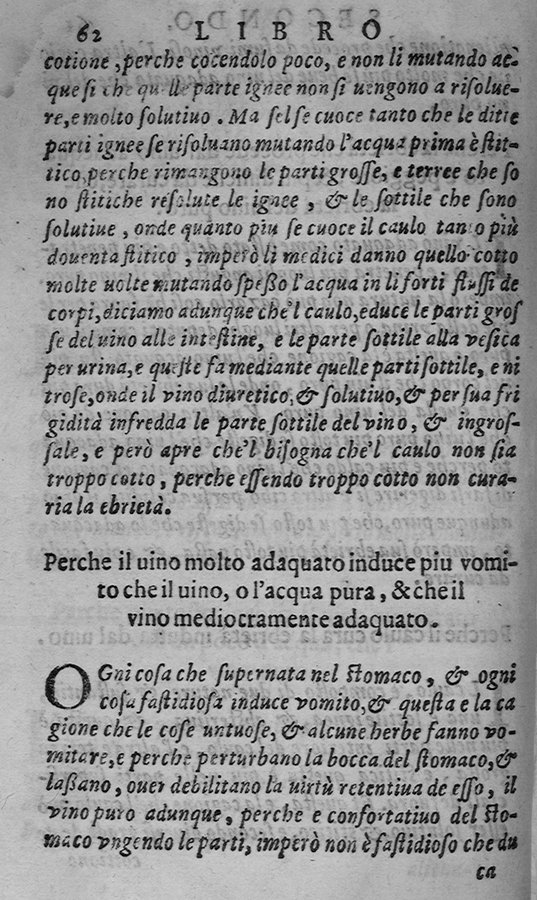 62 LIBRO
cotione, perche cocendolo poco, e non li mutando ac
que si che quelle parte ignee non si uengono a risolue-
re, e molto solutiuo. Ma sel se cuoce tanto che le ditte
parti ignee se risoluano mutando l'acqua prima è stit-
tico, perche rimangono le parti grosse, e terree che so
no stitiche resolute le ignee, & le sottile che sono
solutiue, onde quanto piu se cuoce il caulo tanto più
douenta stitico, imperò li medici danno quello cotto
molte uolte mutando spesso l'acqua in li forti flussi de
corpi, diciamo adunque che'l caulo, educe le parti gros
se del uino alle intestine, e le parte sottile alla vesica
per urina, e queste fa mediante quelle parti sottile, e ni
trose, onde il vino diuretico, & solutiuo, & per sua fri
gidità infredda le parte sottile del vino, & ingros-
sale, e però apre che'l bisogna che'l caulo non sia
troppo cotto, perche essendo troppo cotto non cura-
ria la ebrietà.
Perche il uino molto adaquato induce piu vomi-
to che il uino, o l'acqua pura, & che il
vino mediocramente adaquato.
OGni cosa che supernata nel stomaco, & ogni
cosa fastidiosa induce vomito, & questa e la ca
gione che le cose untuose, & alcune herbe fanno vo-
mitare, e perche perturbano la bocca del stomaco, &
lassano, ouer debilitano la uirtù retentiua de esso, il
vino puro adunque, perche e confortatiuo del sto-
maco vngendo le parti, imperò non è fastidioso che du
ca